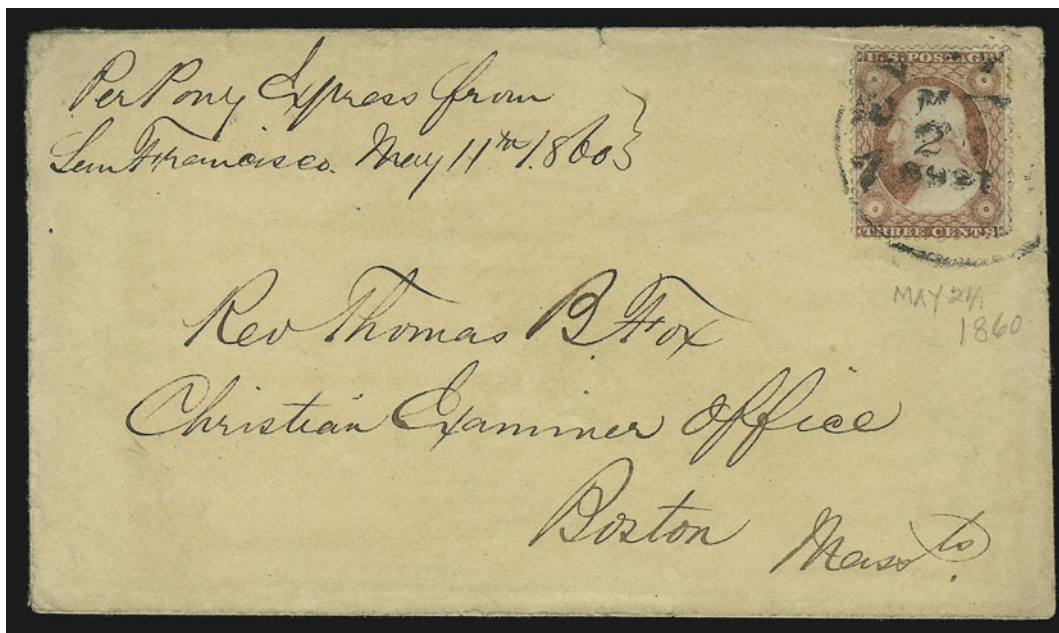 Per Pony Express from
San Francisco. May 11th 1860
U.S. POSTAGE
THREE CENTS
MAY 24
1860
Rev Thomas B. Fox
Christian Examiner Office
Boston
Massts.